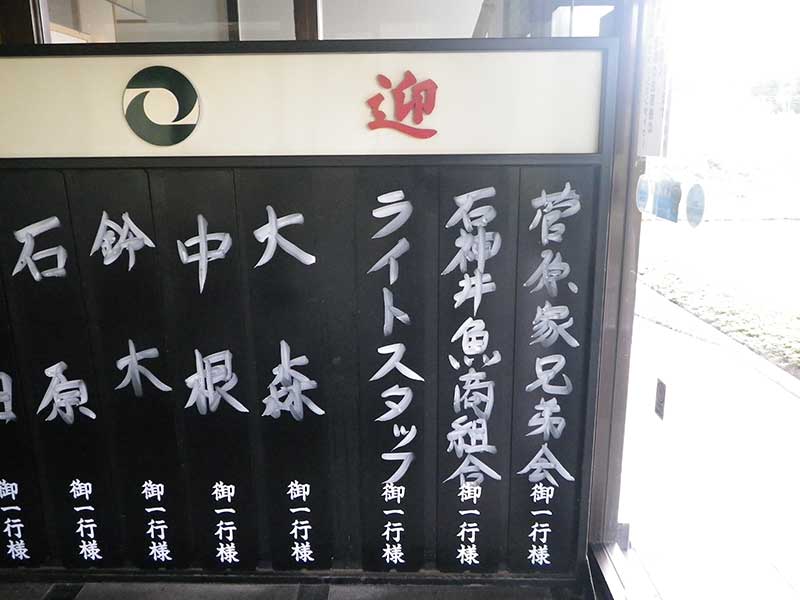 迎
菅原家兄弟会御一行様
石神井魚商組合御一行様
ライトスタッフ御一行様
大森御一行様
中根御一行様
鈴木御一行様
石原御一行様
田御一行様